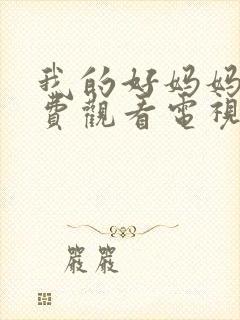 我的好妈妈
费觀看電視
嚴嚴